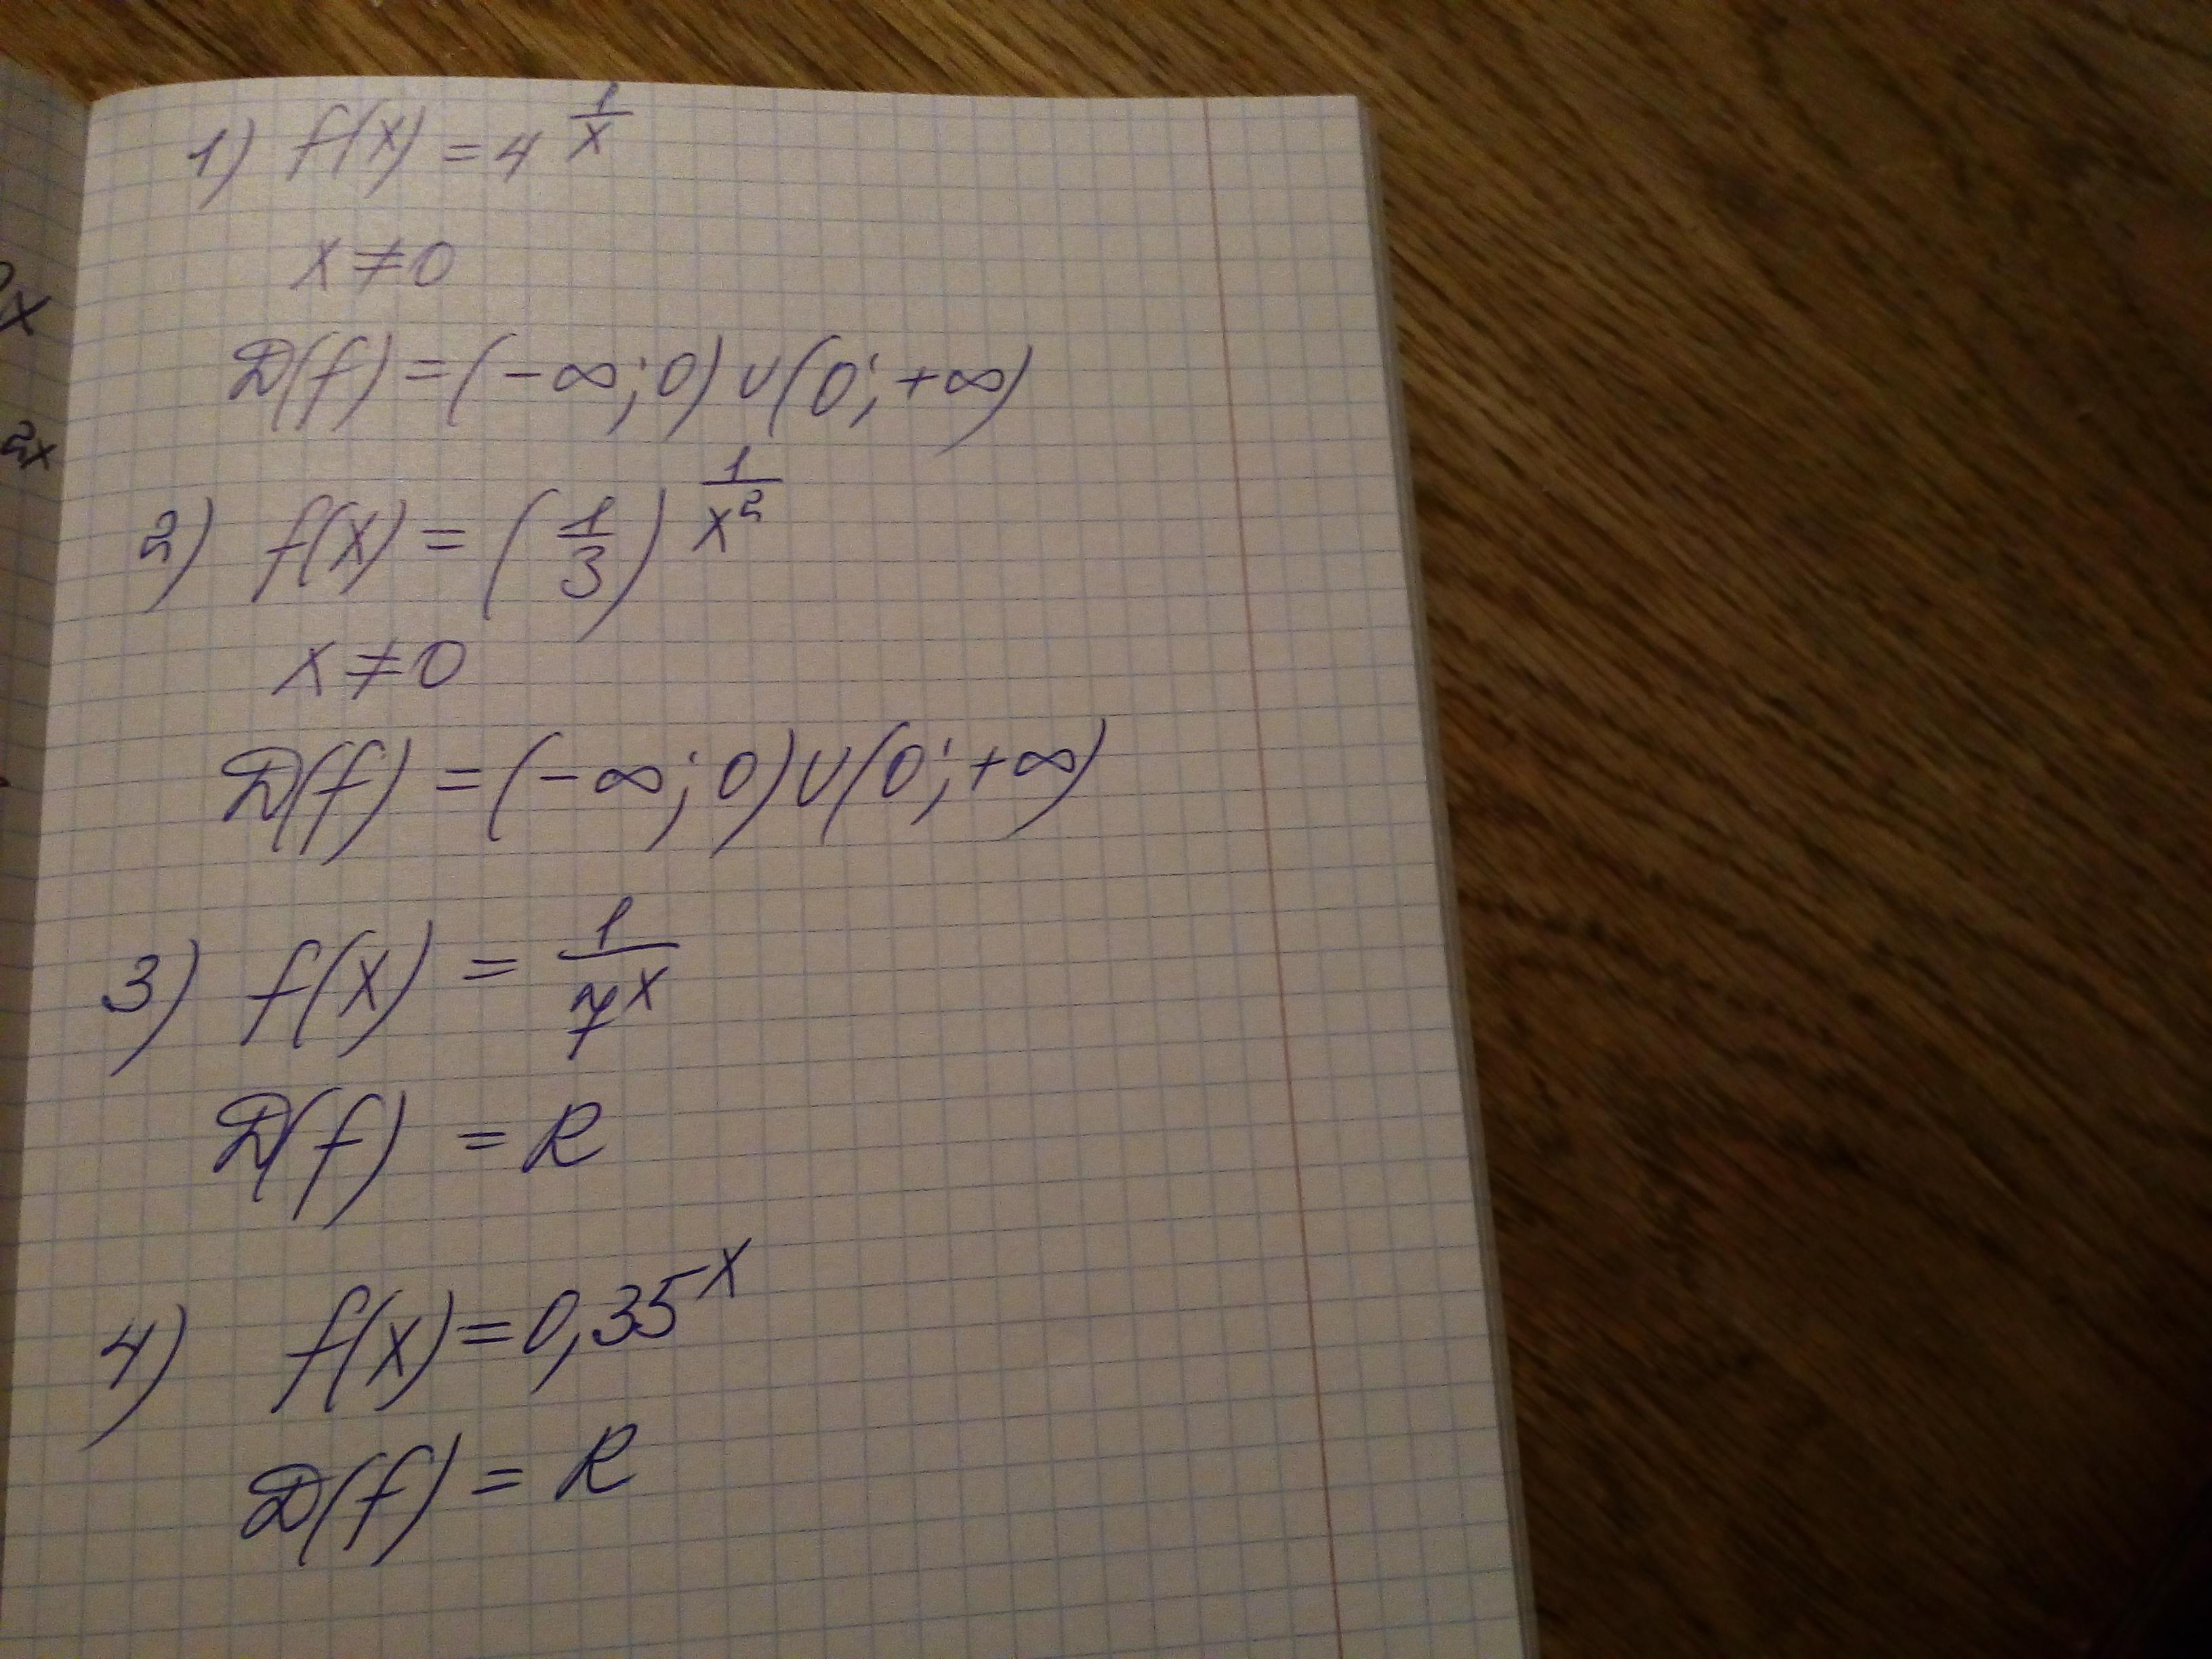 1) f(x) = 4^(1/x)
x ≠ 0
D(f) = (-∞; 0) ∪ (0; +∞)
2) f(x) = (1/3)^(1/x²)
x ≠ 0
D(f) = (-∞; 0) ∪ (0; +∞)
3) f(x) = 1/7^x
D(f) = R
4) f(x) = 0,35^x
D(f) = R
2x